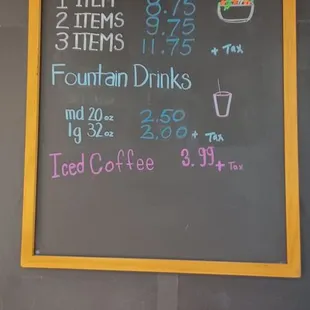 1 ITEM 8.75
2 ITEMS 9.75
3 ITEMS 11.75 + Tax
Fountain Drinks
md 20oz 2.50
lg 32oz 3.00 + Tax
Iced Coffee 3.99 + Tax